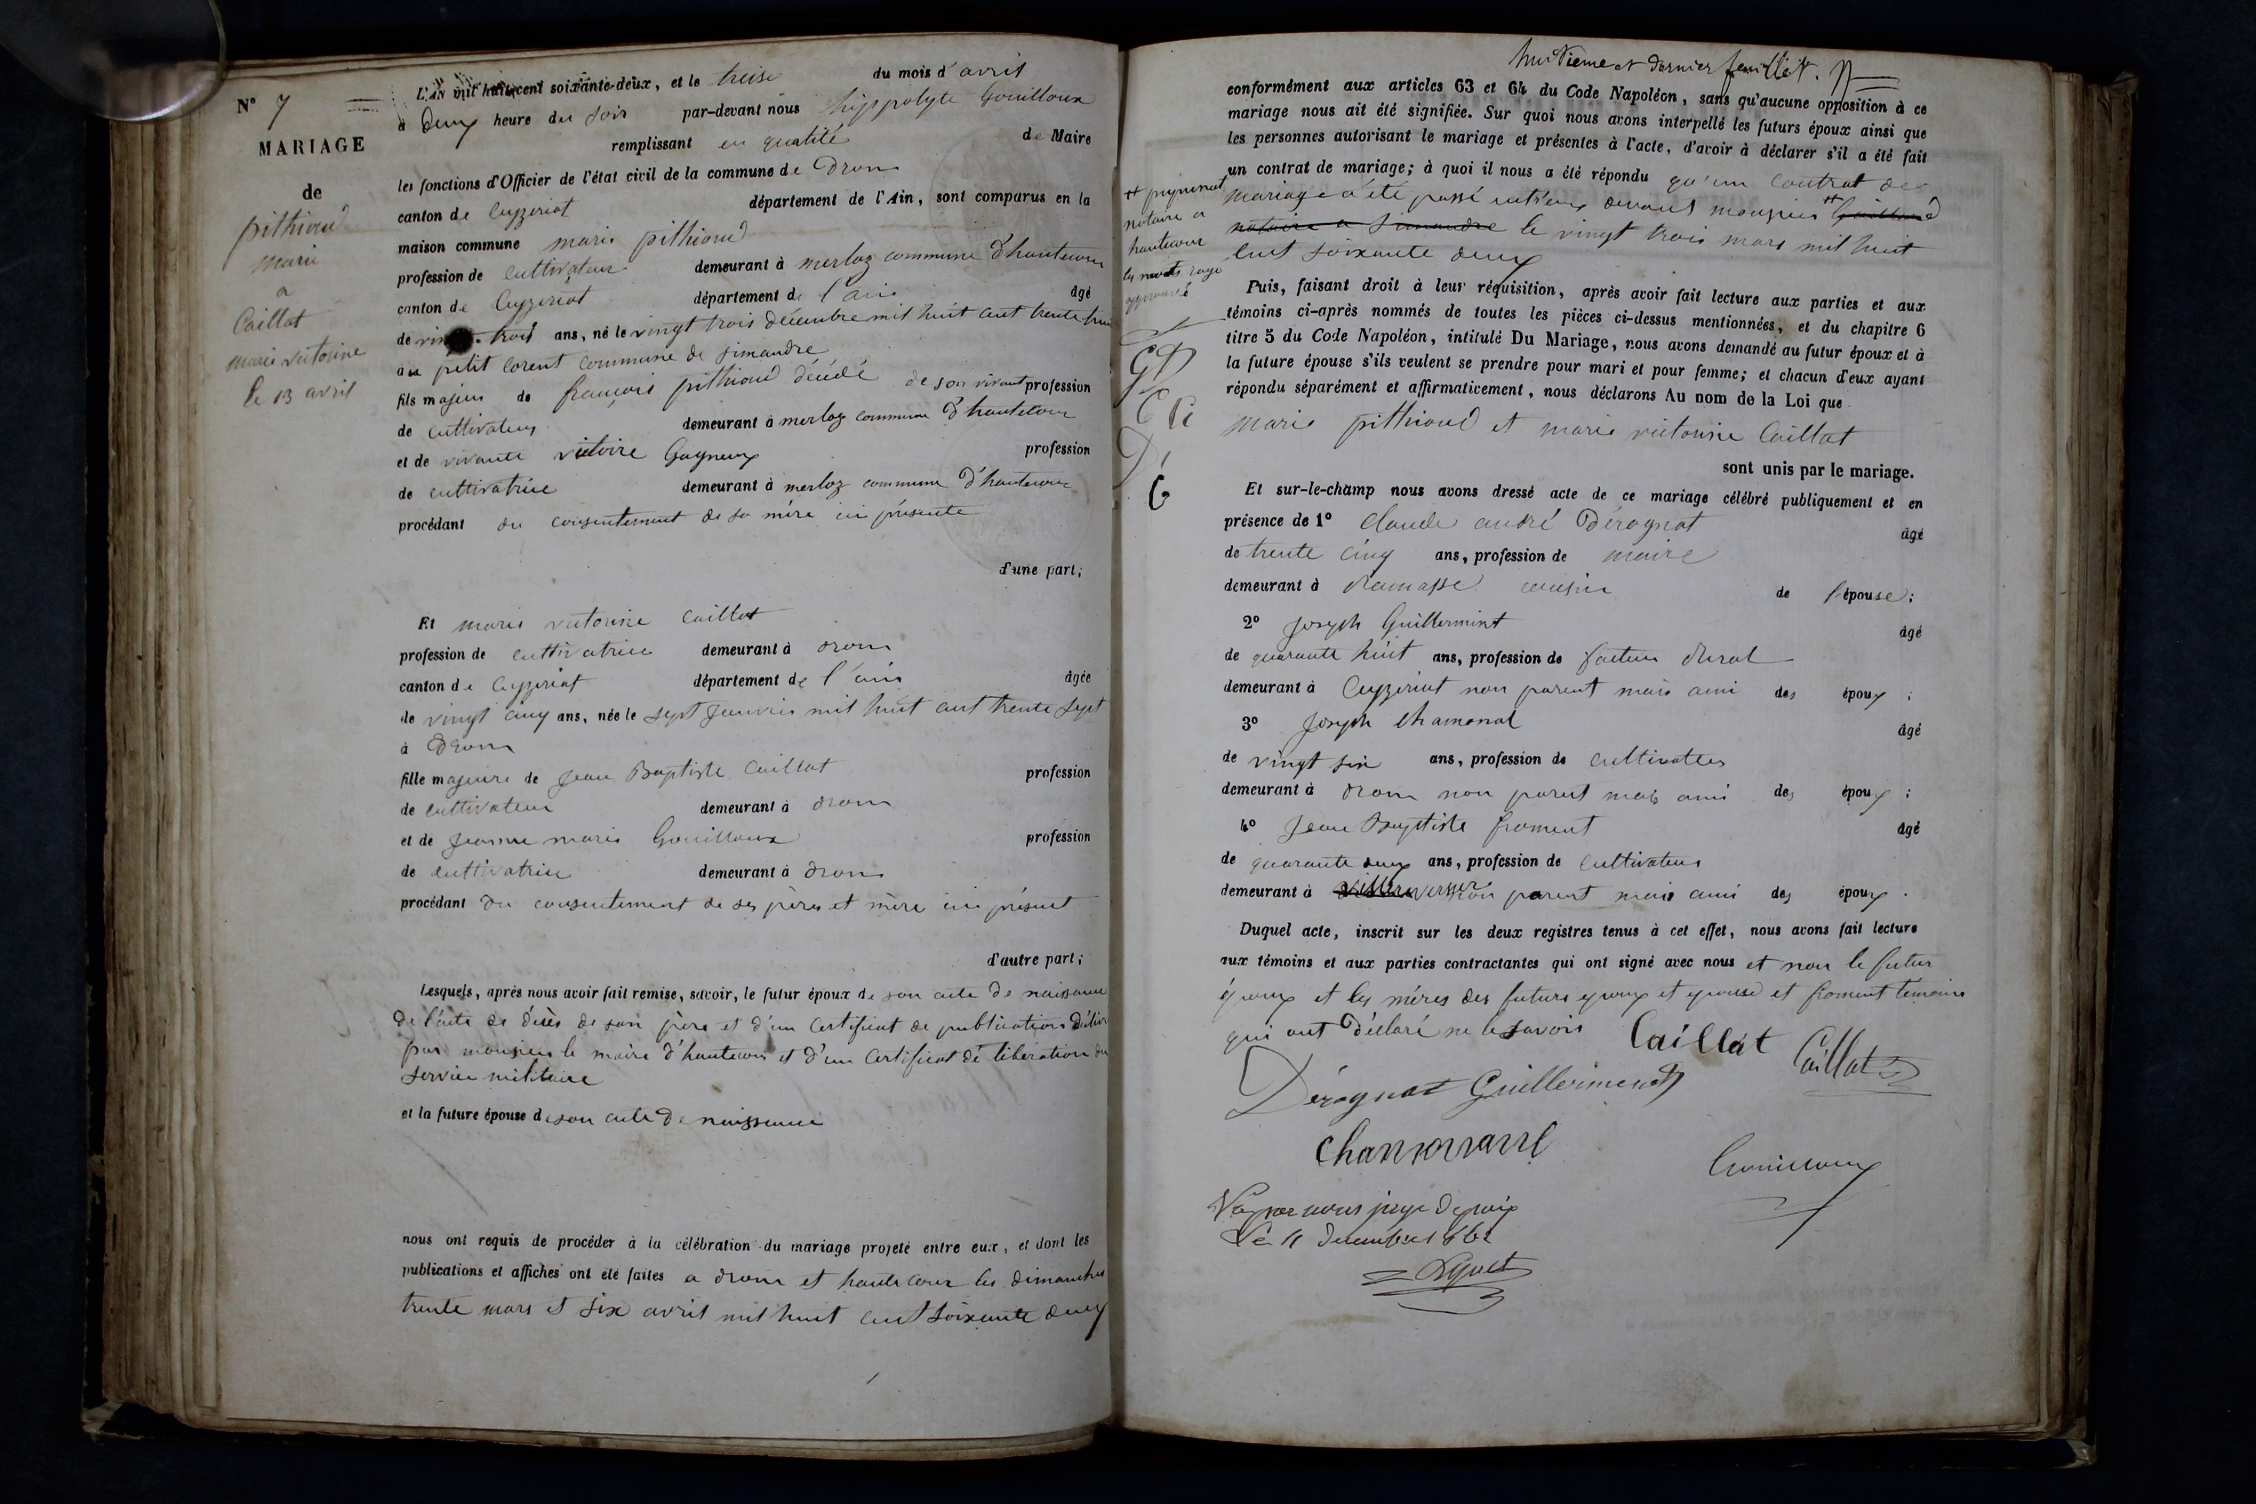 N° 7
MARIAGE
de
pithioud
marie
a
Caillat
marie victorine
le 13 avril
L'AN mil huit cent soixante-deux, et le treize du mois d'avril
à deux heure du soir par-devant nous hippolyte Gouilloux
remplissant en qualité de Maire
les fonctions d'Officier de l'état civil de la commune de Drom
canton de Ceyzeriat département de l'Ain, sont comparus en la
maison commune marie pithioud
profession de cultivateur demeurant à merloz commune d'hautecour
canton de Ceyzeriat département de l'ain âgé
de vingt trois ans, né le vingt trois décembre mil huit cent trente huit
au petit corent commune de simandre
fils majeur de françois pithioud décédé de son vivant profession
de cultivateur demeurant à merloz commune d'hautecour
et de vivante victoire Gagneux profession
de cultivatrice demeurant à merloz commune d'hautecour
procédant du consentement de sa mère ici présente
d'une part;
Et marie victorine Caillat
profession de cultivatrice demeurant à drom
canton de Ceyzeriat département de l'ain âgée
de vingt cinq ans, née le sept janvier mil huit cent trente sept
à Drom
fille majeure de Jean Baptiste Caillat profession
de cultivateur demeurant à drom
et de Jeanne marie Gouilloux profession
de cultivatrice demeurant à drom
procédant du consentement de ses pères et mère ici présent
d'autre part;
Lesquels, après nous avoir fait remise, savoir, le futur époux de son acte de naissance
de l'acte de décès de son père et d'un certificat de publication délivré
par monsieur le maire d'hautecour et d'un certificat de libération du
service militaire
et la future épouse de son acte de naissance
nous ont requis de procéder à la célébration du mariage projeté entre eux, et dont les
publications et affiches ont été faites a drom et hautecour les dimanches
trente mars et six avril mil huit cent soixante deux
huitieme et dernier feuillet.
conformément aux articles 63 et 64 du Code Napoléon, sans qu'aucune opposition à ce
mariage nous ait été signifiée. Sur quoi nous avons interpellé les futurs époux ainsi que
les personnes autorisant le mariage et présentes à l'acte, d'avoir à déclarer s'il a été fait
un contrat de mariage; à quoi il nous a été répondu qu'un contrat de
mariage a été passé entreux devant monsieur
notaire a simandre le vingt trois mars mil huit
cent soixante deux
notaire a
hautecour
les mots rayé
approuvé
Puis, faisant droit à leur réquisition, après avoir fait lecture aux parties et aux
témoins ci-après nommés de toutes les pièces ci-dessus mentionnées, et du chapitre 6
titre 5 du Code Napoléon, intitulé Du Mariage, nous avons demandé au futur époux et à
la future épouse s'ils veulent se prendre pour mari et pour femme; et chacun d'eux ayant
répondu séparément et affirmativement, nous déclarons Au nom de la Loi que
marie pithioud et marie victorine Caillat
sont unis par le mariage.
Et sur-le-champ nous avons dressé acte de ce mariage célébré publiquement et en
présence de 1° Claude andré Dérognat âgé
de trente cinq ans, profession de maire
demeurant à ramasse cousin de l'épouse;
2° Joseph Guillermint âgé
de quarante huit ans, profession de facteur rural
demeurant à Ceyzeriat non parent mais ami des époux;
3° Joseph chamonal âgé
de vingt six ans, profession de cultivateur
demeurant à drom non parent mais ami des époux;
4° Jean Baptiste froment âgé
de quarante deux ans, profession de cultivateur
demeurant à villereversure non parent mais ami des époux.
Duquel acte, inscrit sur les deux registres tenus à cet effet, nous avons fait lecture
aux témoins et aux parties contractantes qui ont signé avec nous et non le futur
époux et les mères des futurs epoux et epouse et froment temoins
qui ont déclaré ne le savoir Caillat Caillat
Dérognat Guillermint
Chamonal
Gouilloux
Vu par nous juge de paix
Le 11 décembre 1862